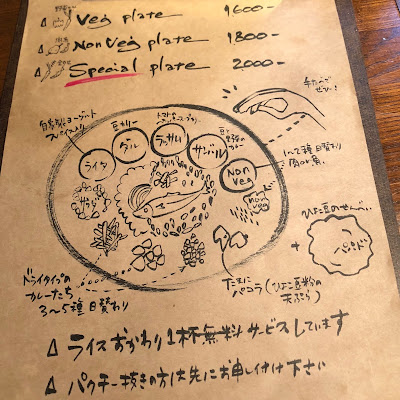 Veg plate 1600-
Non Veg plate 1800-
Special plate 2000-
手たべで
ぜひ!
自家製ヨーグルト
スパイス入り
豆カレー
トマトタマリンドスープ
豆と野菜の
カレー
ライタ
ダル
ラッサム
サンバル
Non
Veg
1〜2種 日替わり
肉or魚
non
veg
ひよこ豆のせんべい
+
パパド
ドライタイプの
カレーたち
3〜5種 日替わり
たまに
パコラ(ひよこ豆粉の
天ぷら)
△ ライスおかわり1杯無料サービスしています
△ パクチー抜きの方は先にお申し付け下さい